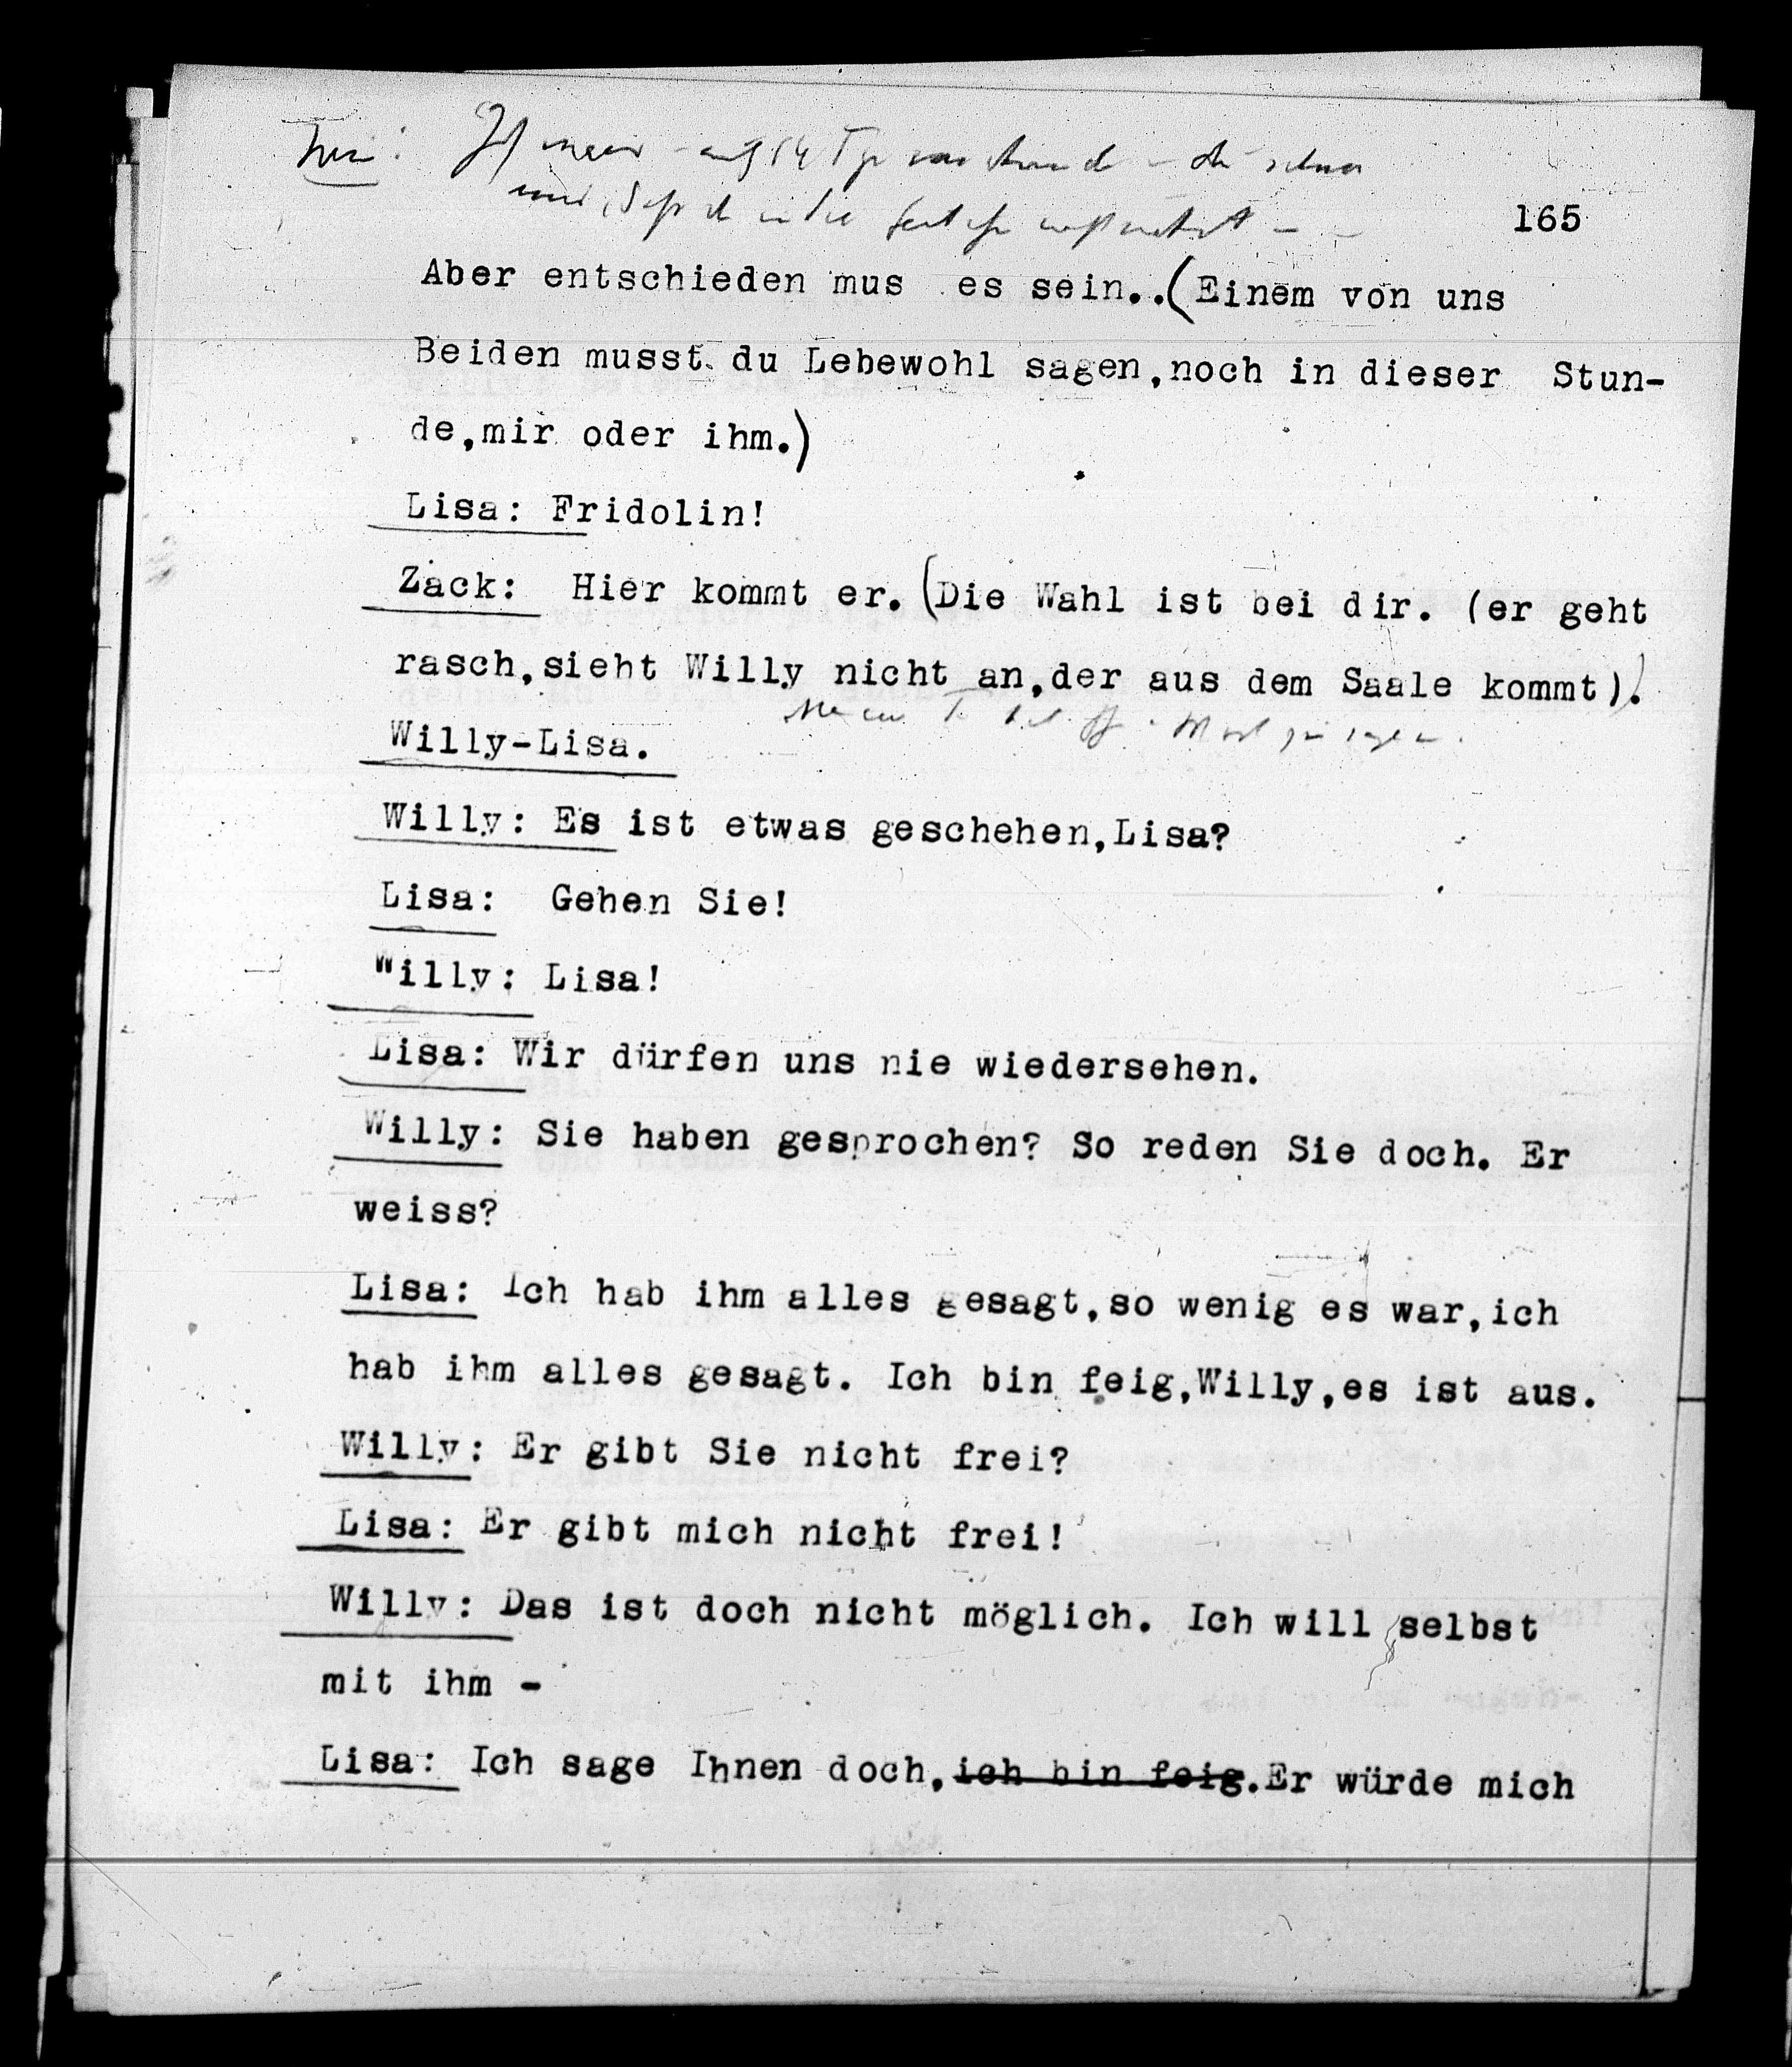 165
Aber entschieden mus es sein..(Einem von uns
Beiden musst du Lebewohl sagen,noch in dieser Stun-
de,mir oder ihm.)
Lisa: Fridolin!
Zack: Hier kommt er. (Die Wahl ist bei dir. (er geht
rasch,sieht Willy nicht an,der aus dem Saale kommt).
Willy-Lisa.
Willy: Es ist etwas geschehen,Lisa?
Lisa: Gehen Sie!
Willy: Lisa!
Lisa: Wir dürfen uns nie wiedersehen.
Willy: Sie haben gesprochen? So reden Sie doch. Er
weiss?
Lisa: Ich hab ihm alles gesagt,so wenig es war,ich
hab ihm alles gesagt. Ich bin feig,Willy,es ist aus.
Willy: Er gibt Sie nicht frei?
Lisa: Er gibt mich nicht frei!
Willy: Das ist doch nicht möglich. Ich will selbst
mit ihm -
Lisa: Ich sage Ihnen doch,ich bin feig.Er würde mich